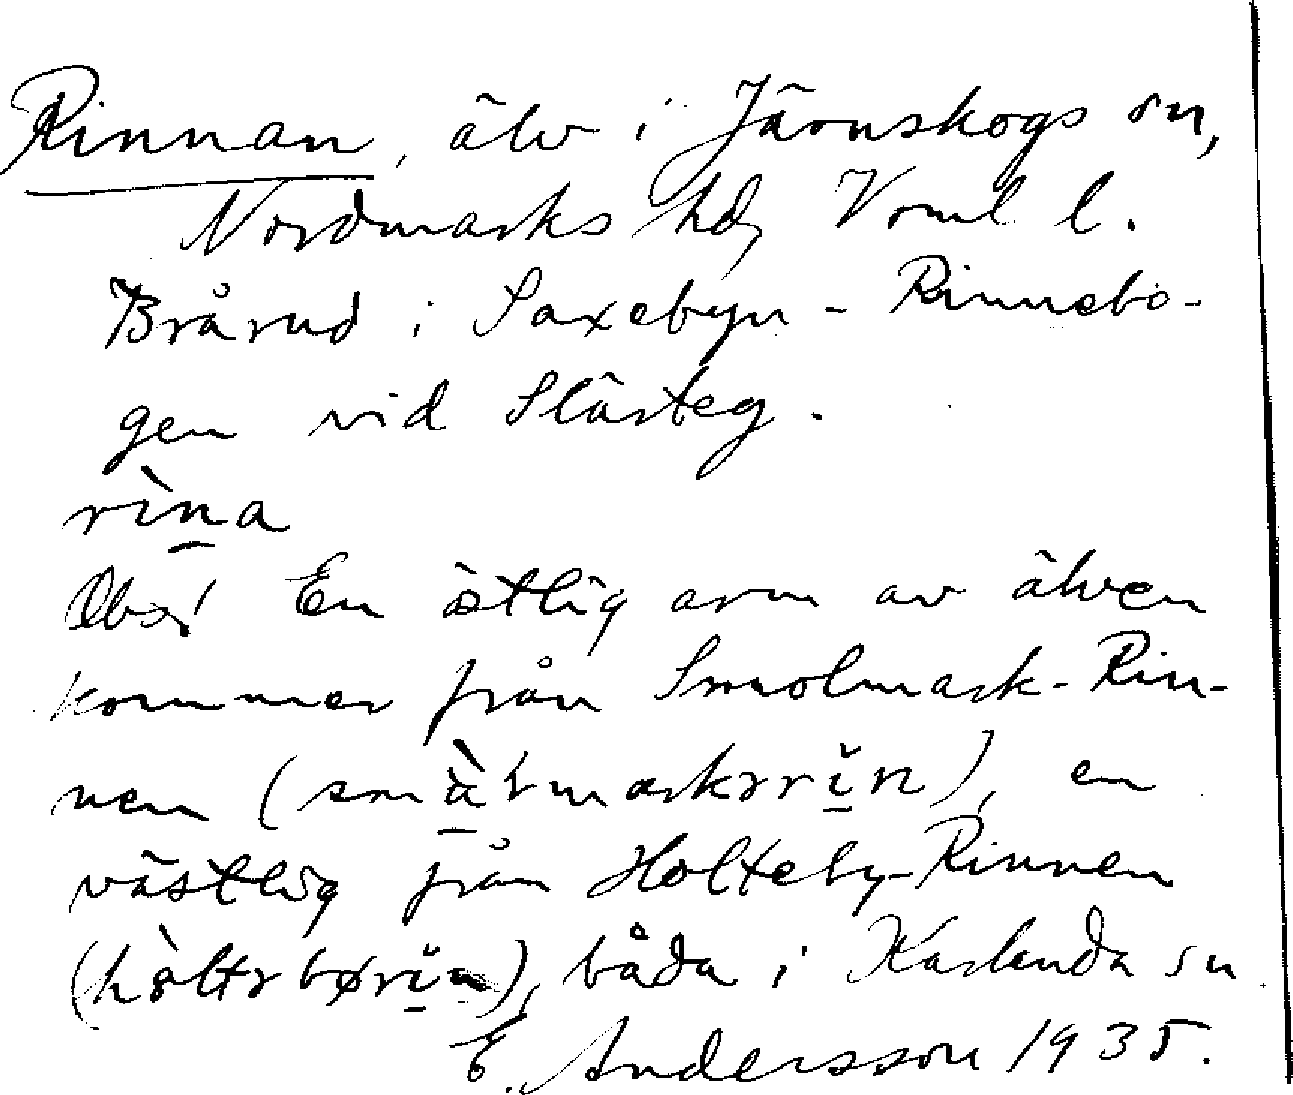 Rinnan, älv i Järnskogs sn,
Nordmarks hd, Vrml l.
Brårud i Saxebyn - Rinnebo-
gen vid Slästeg.
rìn̲a
Obs! En östlig arm av älven
kommer från Smolmark-Rin-
nen (smà̲łmarkərĭ̲n), en
västlig från Holteby-Rinnen
båda i Karlanda sn
E. Andersson 1935.